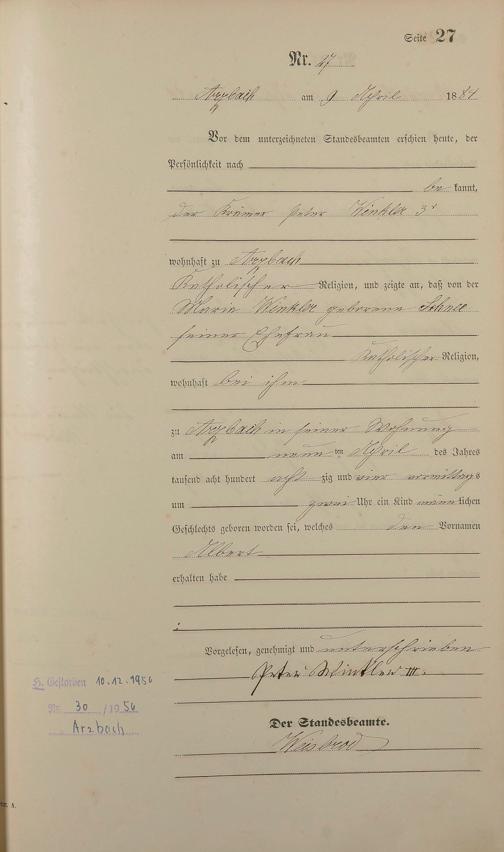 Seite 27
Nr. 27
Arzbach am 9 April 1884
Vor dem unterzeichneten Standesbeamten erschien heute, der
Persönlichkeit nach
be kannt,
der Krämer Peter Winkler 3r
wohnhaft zu Arzbach
Katholischer Religion, und zeigte an, daß von der
Maria Winkler geborene
seiner Ehefrau
Katholischer Religion,
wohnhaft bei ihm
zu Arzbach in seiner Wohnung
am neunten April des Jahres
tausend acht hundert acht zig und vier vormittags
um zwei Uhr ein Kind männlichen
Geschlechts geboren worden sei, welches den Vornamen
Albert
erhalten habe
Vorgelesen, genehmigt und unterschrieben
Peter Winkler III.
H. Gestorben 10.12.1956
Nr. 30 /1956
Arzbach
Der Standesbeamte.
Weisbrod